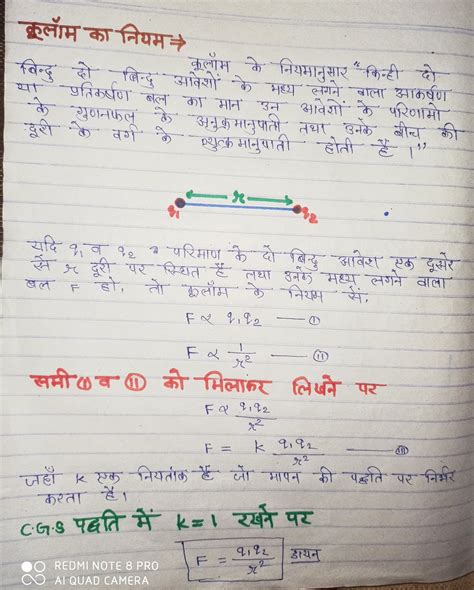 कूलॉम का नियम →
कूलॉम के नियमानुसार "किन्ही दो
बिन्दु दो बिन्दु आवेशों के मध्य लगने वाला आकर्षण
या प्रतिकर्षण बल का मान उन आवेशों के परिणामो
के गुणनफल के अनुक्रमानुपाती तथा उनके बीच की
दूरी के वर्ग के व्युत्क्रमानुपाती होती है ।"
r
q₁ q₂
यदि q₁ व q₂ परिमाण के दो बिन्दु आवेश एक दूसरे
से r दूरी पर स्थित है तथा उनके मध्य लगने वाला
बल F हो, तो कूलॉम के नियम से,
F ∝ q₁q₂ — (I)
F ∝ 1/r² — (II)
समी (I) व (II) को मिलाकर लिखने पर
F ∝ q₁q₂/r²
F = K q₁q₂/r² — (III)
जहाँ K एक नियतांक है जो मापन की पद्धति पर निर्भर
करता है।
C.G.S पद्धति में K=1 रखने पर
F = q₁q₂/r² डायन
REDMI NOTE 8 PRO
AI QUAD CAMERA